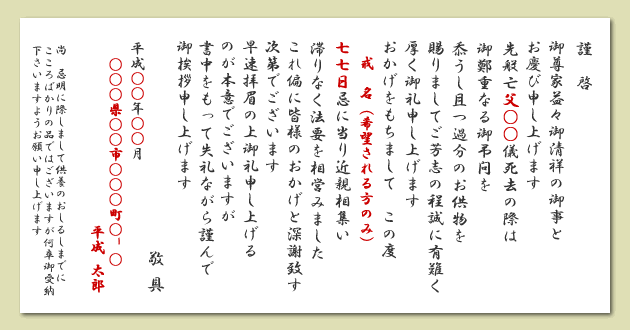 謹啓
御尊家益々御清祥の御事と
お慶び申し上げます
先般亡父〇〇儀死去の際は
御鄭重なる御弔問を
忝うし且つ過分のお供物を
賜りましてご芳志の程誠に有難く
厚く御礼申し上げます
おかげをもちまして この度
戒 名(希望される方のみ)
七七日忌に当り近親相集い
滞りなく法要を相営みました
これ偏に皆様のおかげと深謝致す
次第でございます
早速拝眉の上御礼申し上げる
のが本意でございますが
書中をもって失礼ながら謹んで
御挨拶申し上げます
敬具
平成〇〇年〇〇月
〇〇〇県〇〇市〇〇〇町〇-〇
平成 太郎
尚 忌明に際しまして供養のおしるしまでに
こころばかりの品ではございますが何卒御受納
下さいますようお願い申し上げます